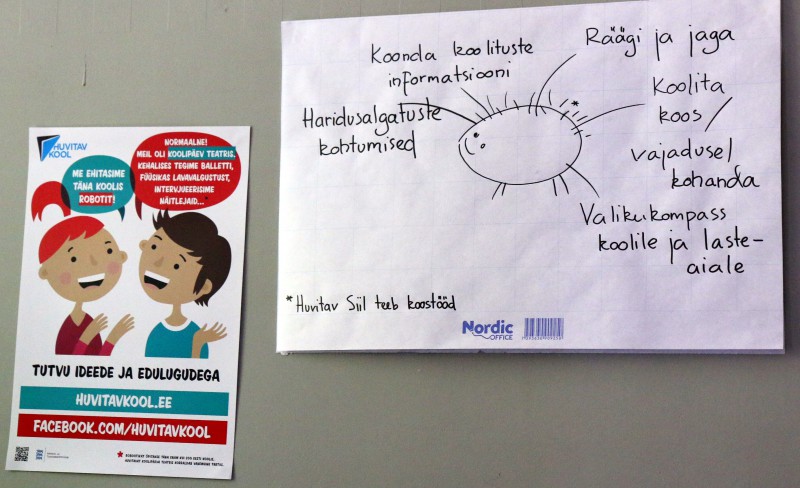 HUVITAV
KOOL
ME EHITASIME
TÄNA KOOLIS
ROBOTIT!
NORMAALNE!
MEIL OLI KOOLIPÄEV TEATRIS.
KEHALISES TEGIME BALLETTI,
FÜÜSIKAS LAVAVALGUSTUST,
INTERVJUEERISIME
NÄITLEJAID...
TUTVU IDEEDE JA EDULUGUDEGA
HUVITAVKOOL.EE
FACEBOOK.COM/HUVITAVKOOL
Koonda koolituste
informatsiooni
Haridusalgatuste
kohtumised
Räägi ja jaga
*
Koolita
koos /
vajadusel
kohanda
Valikukompass
koolile ja laste-
aiale
* Huvitav Siil teeb koostööd
Nordic
OFFICE